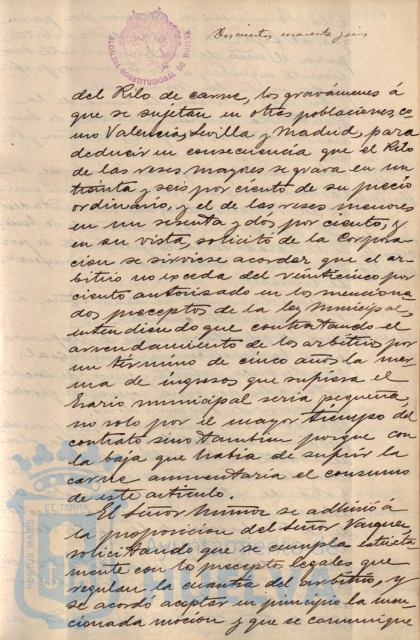 Doscientos cuarenta y seis
ALCALDIA CONSTITUCIONAL DE HUELVA
del Kilo de carne, los gravámenes á
que se sujetan en otras poblaciones, co
mo Valencia, Sevilla y Madrid, para
deducir en consecuencia que el Kilo
de las reses mayores se grava en un
treinta y seis por ciento de su precio
ordinario, y el de las reses menores
en un sesenta y dos por ciento, y
en su vista, solicitó de la Corpora
cion se sirviese acordar que el ar-
bitrio no exceda del veinticinco por
ciento autorizado en los menciona-
dos preceptos de la ley Municipal,
entendiendo que contratando el
arrendamiento de los arbitrios por
un término de cinco años la mer-
ma de ingresos que sufriera el
Erario municipal seria pequeña,
no solo por el mayor tiempo del
contrato sino tambien porque con
la baja que habia de sufrir la
carne aumentaria el consumo
de este artículo.
El Señor Muñoz se adhirió á
la proposicion del Señor Vazquez,
solicitando que se cumpla estricta
mente con los preceptos legales que
regulan la cuantia del arbitrio, y
se acordó aceptar en principio la men
cionada mocion y que se comunique
EL TERRÆ
PORTUS MARIS
Ayuntamiento de
HUELVA